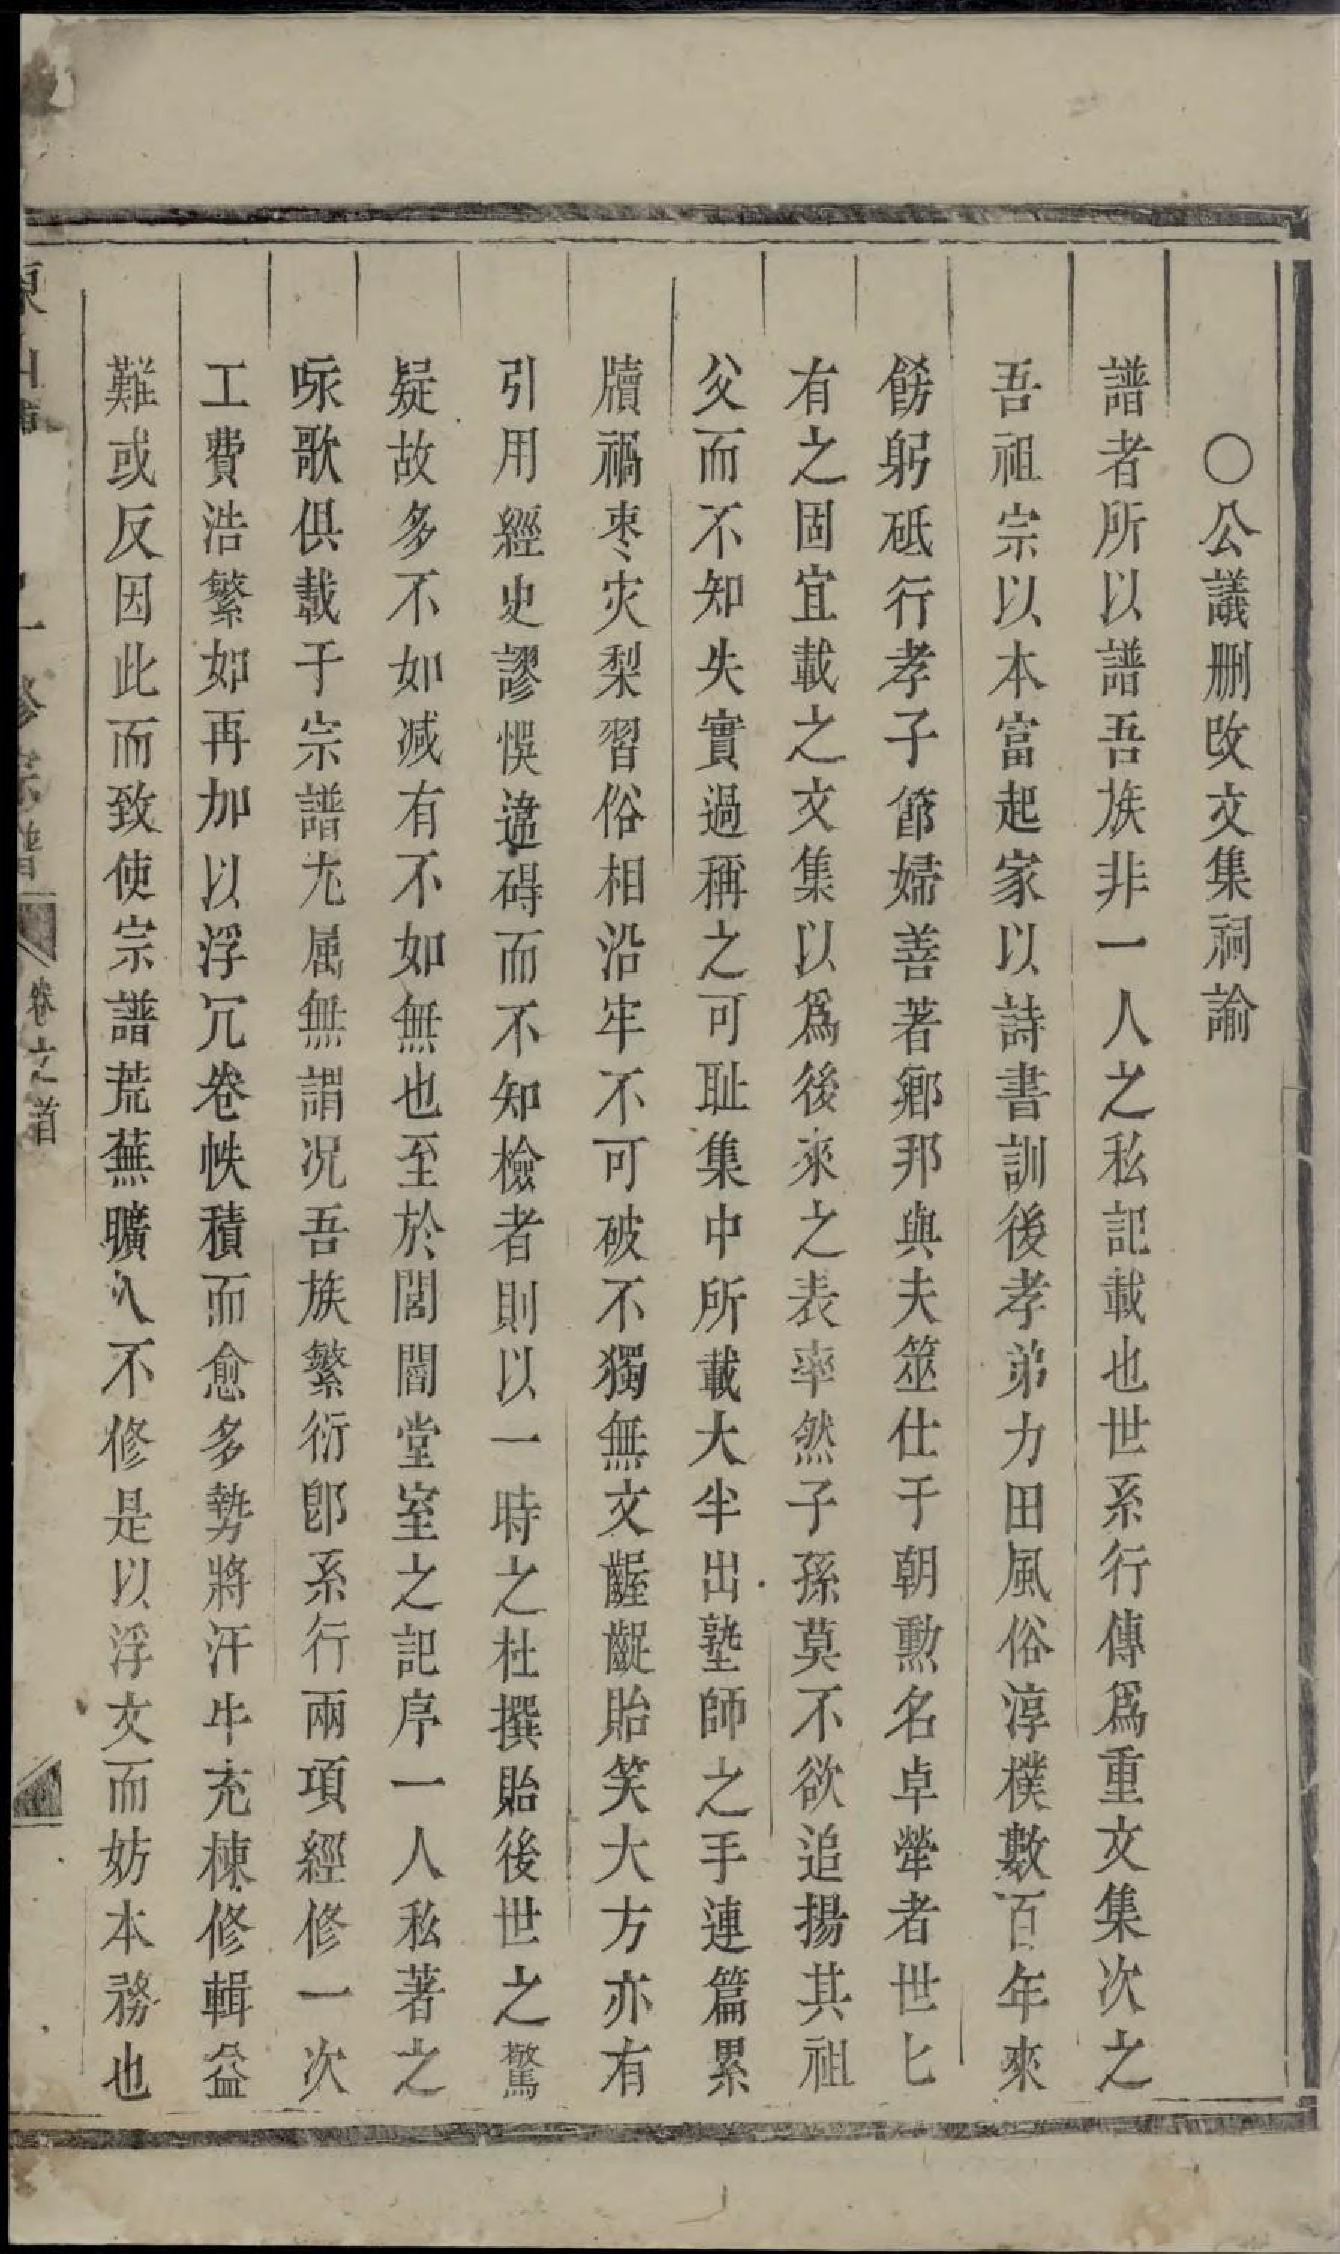 ○公議刪改文集祠諭
譜者所以譜吾族非一人之私記載也世系行傳爲重文集次之
吾祖宗以本富起家以詩書訓後孝弟力田風俗淳樸數百年來
餝躬砥行孝子節婦善著鄉邦與夫筮仕于朝勲名卓犖者世匕
有之固宜載之文集以爲後來之表率然子孫莫不欲追揚其祖
父而不知失實過稱之可耻集中所載大半出塾師之手連篇累
牘禍枣灾梨習俗相沿牢不可破不獨無文齷齪貽笑大方亦有
引用經史謬悞違碍而不知檢者則以一時之杜撰貽後世之驚
疑故多不如减有不如無也至於閭閻堂室之記序一人私著之
咏歌俱載于宗譜尢属無謂况吾族繁衍卽系行兩項經修一次
工費浩繁如再加以浮冗卷帙積而愈多勢將汗牛充棟修輯益
難或反因此而致使宗譜荒蕪曠乆不修是以浮文而妨本務也
卷之首